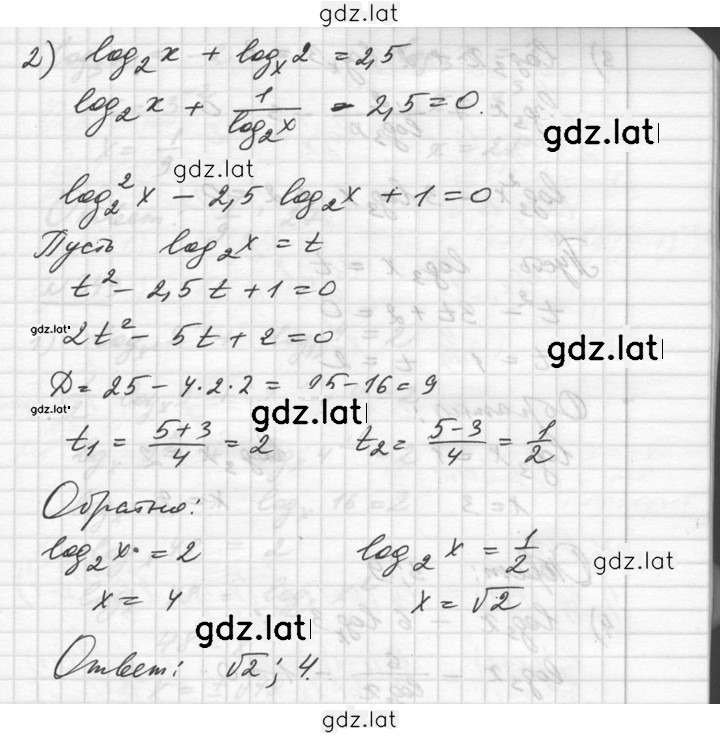 gdz.lat
2) log₂x + logₓ2 = 2,5
log₂x + 1/log₂x - 2,5 = 0.
gdz.lat
gdz.lat
log₂²x - 2,5 log₂x + 1 = 0
Пусть log₂x = t
t² - 2,5t + 1 = 0
gdz.lat
2t² - 5t + 2 = 0
gdz.lat
D = 25 - 4·2·2 = 25 - 16 = 9
gdz.lat
gdz.lat
t₁ = (5+3)/4 = 2 t₂ = (5-3)/4 = 1/2
Обратно:
log₂x = 2 log₂x = 1/2
gdz.lat
x = 4 x = √2
gdz.lat
Ответ: √2; 4.
gdz.lat